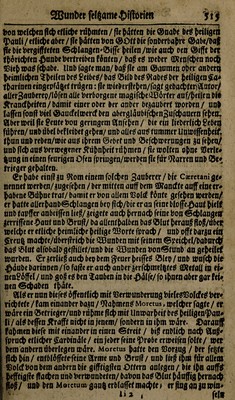 Wunder seltzame Historien 515
von welchen sich etliche rühmten / sie hätten die Gnade des heiligen
Pauli / etliche aber / sie hätten von GOtt die sonderbahre Gabe / daß
sie die vergiffteten Schlangen-Bisse heilen / wie auch den Gifft der
thörichten Hunde vertreiben könten / daß es weder Menschen noch
Vieh was schade. Und sagte man / daß sie am Gaumen oder andern
heimlichen Theilen des Leibes / das Bild des Rades der heiligen Ca-
tharinen eingeätzet trügen / sie widerstehen / sagt gedachter Autor /
aller Zauberey / lösen alle verborgene magische Wörter auff / heilen die
Kranckheiten / damit einer oder der ander bezaubert worden / und
lassen sonst viel Gauckelwerck den abergläubischen Zuschauern sehen.
Aber weil sie Leute von geringem Ansehen / die ein liederlich Leben
führen / und übel bekleidet gehen / und alles aus rummer Unwissenheit
thun und reden / wie aus ihrem Gebet und Beschwerungen zu sehen /
und sich aus verwegener Kühnheit rühmen / sie wolten ohne Verle-
tzung in einen feurigen Ofen springen / werden sie für Narren und Be-
trieger gehalten.
Er habe einst zu Rom einem solchen Zauberer / die Caretani ge-
nennet werden / zugesehen / der mitten auff dem Marckt auff einer er-
habene Bühne trat / damit er von allem Volck könte gesehen werden /
er hatte allerhand Schlangen bey sich / die er an seine blosse Haut hielt
und darffer anbeissen ließ / zeigete auch hernach seine von Schlangen
zerrissene Haut und Brust / da allenthalben das Blut herauß floß / über
welche er etliche heimliche heilige Worte sprach / und offt darüber
Creutz machte / überstrich die Wunden mit seinem Speichel / dadurch
das Blut alsobald gestillet / und die Wunden von Stund an geheilet
wurden. Er zerließ auch bey dem Feuer heisses Bley / und wusch die
Hände darinnen / so faste er auch ander zerschmeltztes Metall in ei-
nen Löffel / und goß es den Tauben in die Hälse / so ihnen aber gar kei-
nen Schaden thäte.
Als er nun dieses öffentlich mit Verwunderung vieles Volckes ver-
richtete / kam einander dazu / Nahmens Moretus, welcher sagte / er
wäre ein Betrieger / und rühme sich mit Unwarheit des heiligen Pau-
li / als dessen Krafft nicht in jenem / sondern in ihm wäre. Darauff
kahmen diese mit einander in einen Streit / biß endlich nach Auß-
spruch etlicher Cardinäle / ein jeder seine Probe erweisen solte / wer
dem andern überlegen wäre. Moretus hatte den Vorzug / der setzte
sich hin / entblössete seine Arme und Brust / und ließ ihm für allem
Volck von dem andern die gifftigsten Ottern anlegen / die ihn auffs
hefftigste stachen und verwundeten / davon das Blut häuffig hernach
floß / und den Moretum gantz erblasset machte / er fing an zu win-
Ii 2 seln